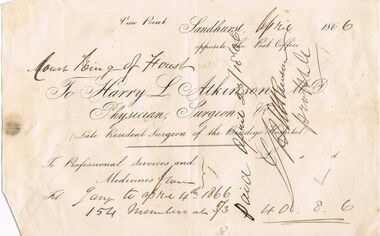 View Point. Sandhurst, April 1866
opposite the Post Office
Court King of Forest
To Harry L. Atkinson, M.D.
Physician, Surgeon, &c.
(Late Resident Surgeon of the Bendigo Hospital)
To Professional Services and
Medicines
to April 4th 1866
154 Members at 5/3 40. 8. 6
Paid April